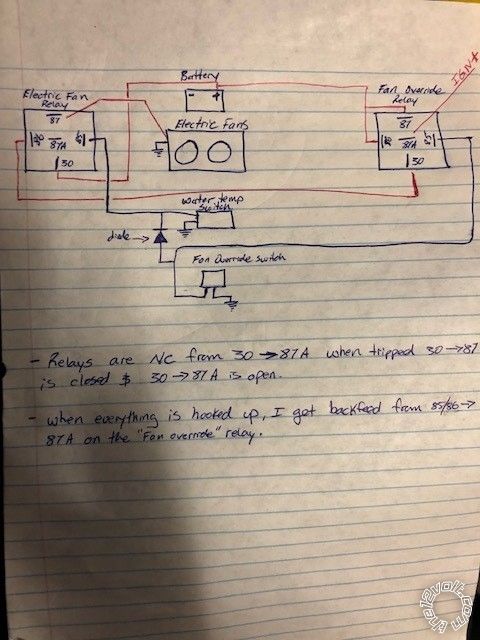 Battery
- +
Electric Fan
Relay
87
86
87A
85
30
Electric Fans
Fan Override
Relay
IGN+
87
86
87A
85
30
Water temp
Switch
diode →
Fan Override Switch
- Relays are NC from 30 → 87A when tripped 30 → 87
is closed & 30 → 87A is open.
- when everything is hooked up, I get backfeed from 85/86 →
87A on the "Fan override" relay.
the12volt.com